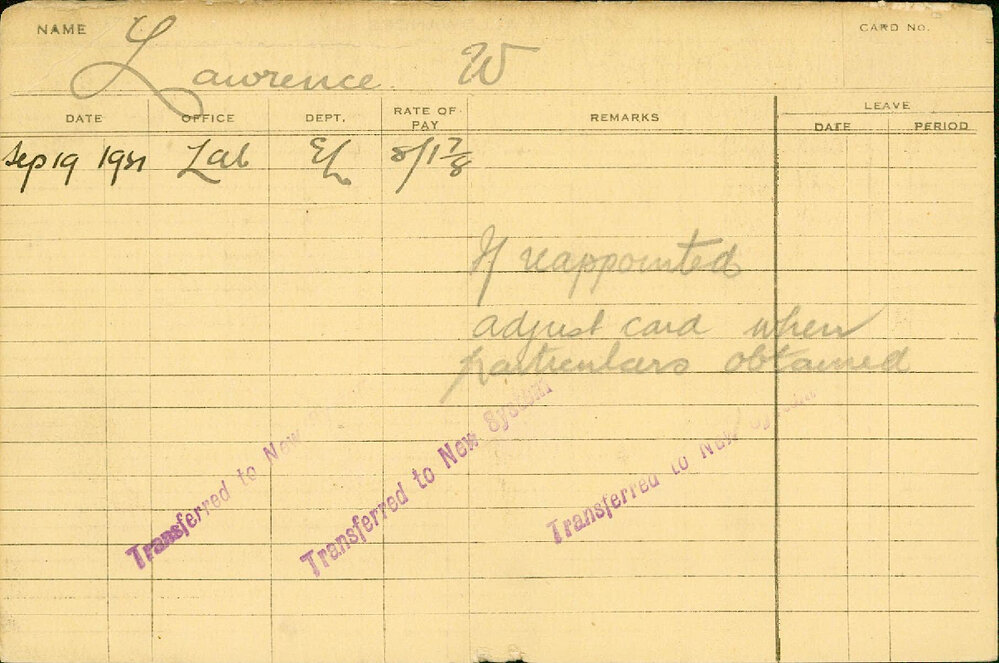 NAME
CARD NO.
Lawrence W
DATE OFFICE DEPT. RATE OF PAY REMARKS LEAVE
DATE PERIOD
Sep 19 1921 Lab EL 8/1 7/8
If reappointed
adjust card when
particulars obtained
Transferred to New System
Transferred to New System
Transferred to New System